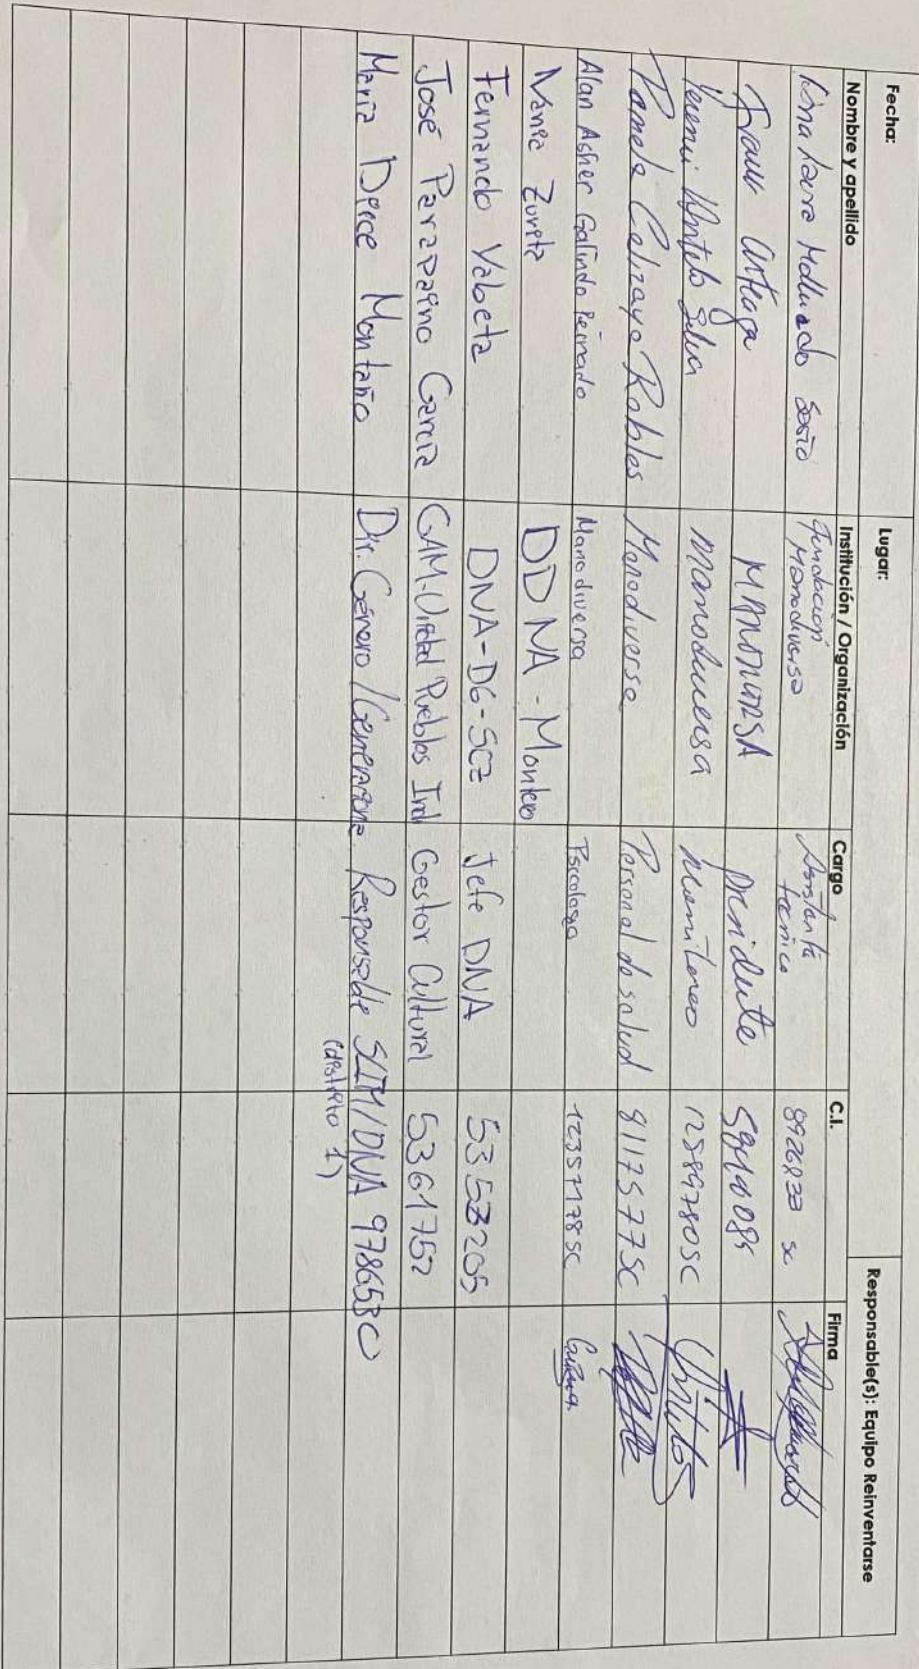 Fecha: Lugar: Responsable(s): Equipo Reinventarse
Nombre y apellido Institución / Organización Cargo C.I. Firma
Laura Fundación Manodiversa técnico 8926833 sc
Arteaga MANODIVERSA Presidente
Silva Manodiversa 12589780SC
Pamela Celizaya Robles Manodiversa Personal de salud 8117577SC
Alan Asher Galindo Peinado Manodiversa Psicologo 12357178SC
Vania Zurita DDNA - Montero
Fernando Valoeta DNA-DG-SCZ Jefe DNA 5353205
José Parapaino García GAM-Unidad Pueblos Ind Gestor Cultural 5361752
María Deice Montaño Dir. Género/Generaciona Responsable SLIM/DNA 9786580
(distrito 1)